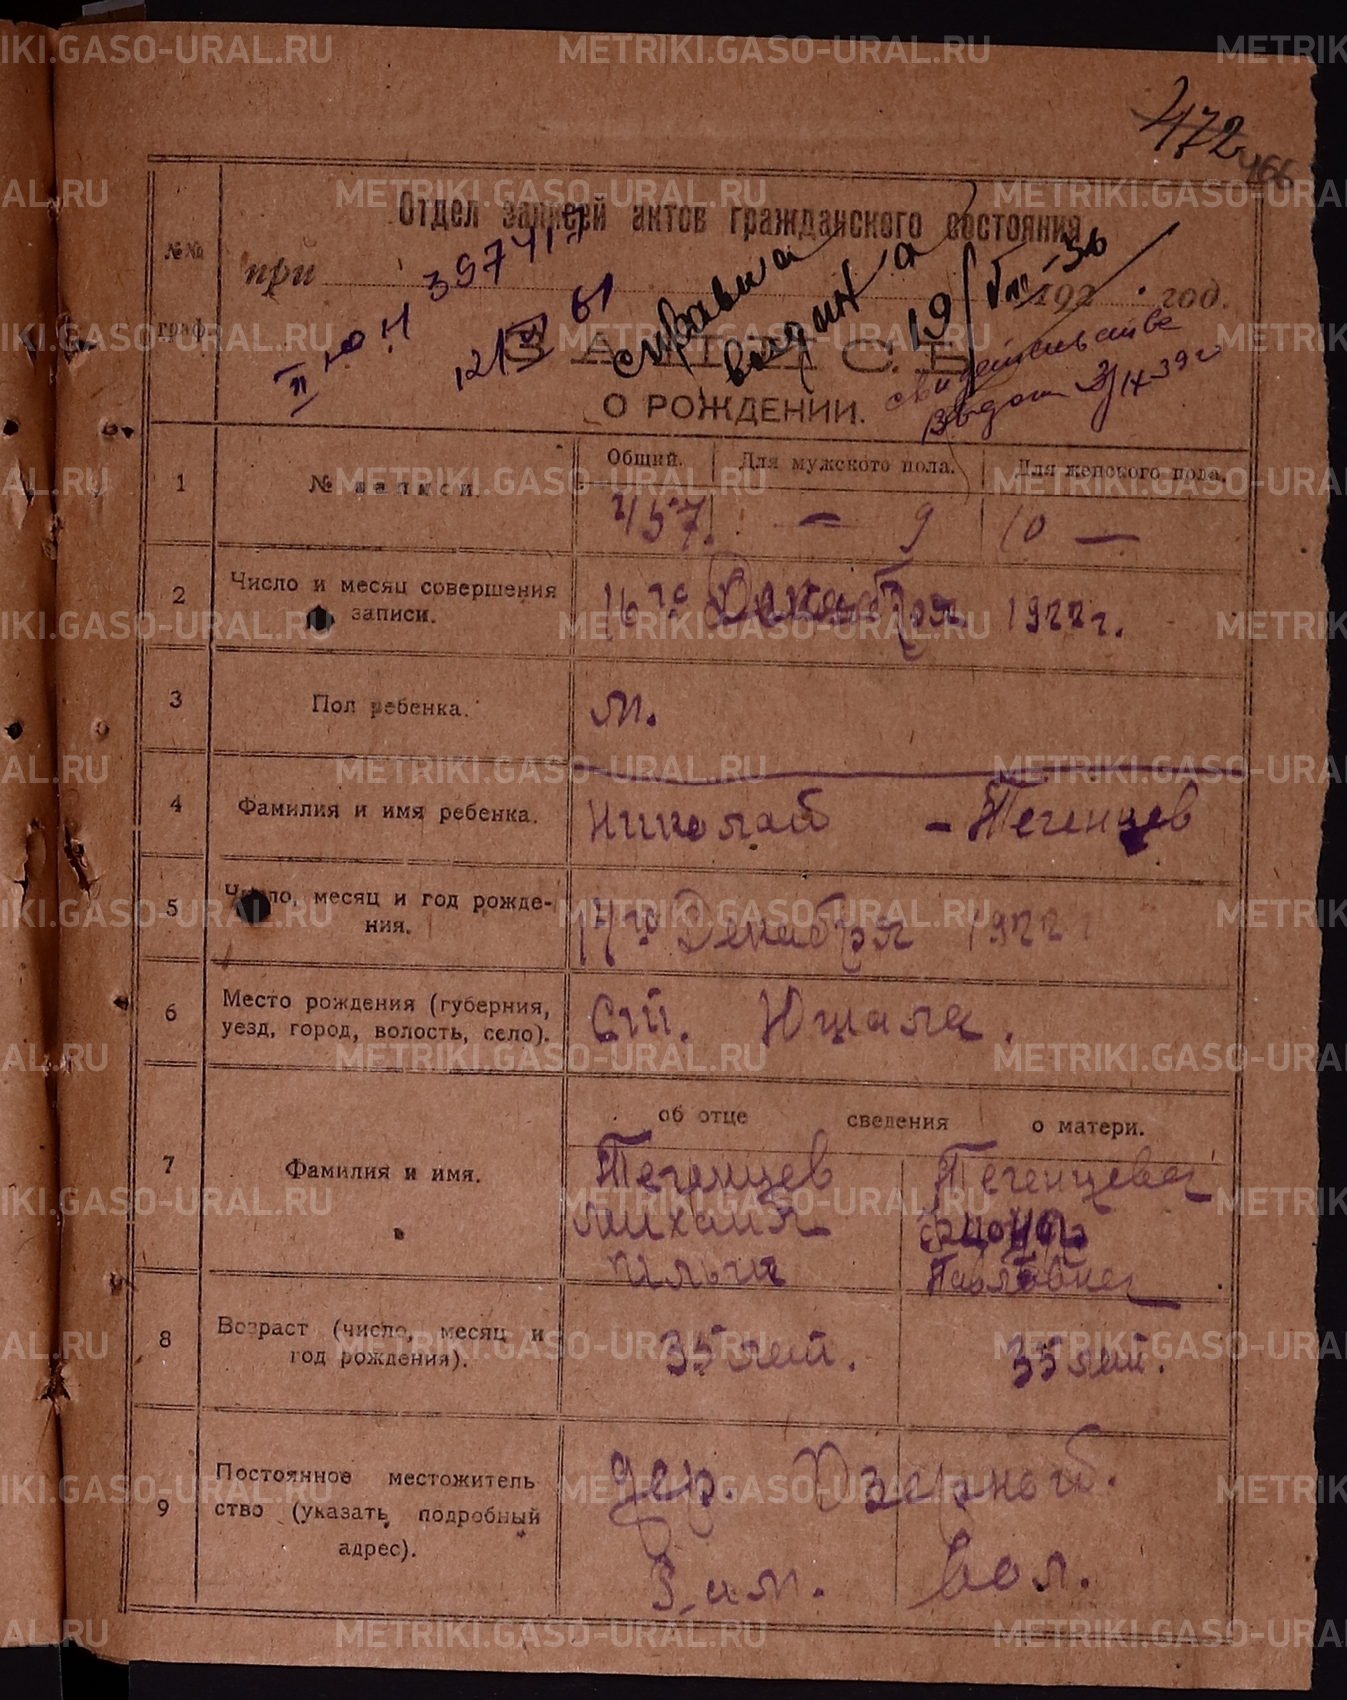 METRIKI.GASO-URAL.RU
472
466
№№ граф.
Отдел записей актов гражданского состояния
при
192 год.
II ЮН 397417
12/VI 61
справка выдана 19/VIII-36
свидетельство
Выдан 3/IX-39 г
ЗАПИСЬ
О РОЖДЕНИИ.
1
№ записи.
Общий.
Для мужского пола.
Для женского пола.
457.
— 9
10 —
2
Число и месяц совершения
записи.
16го Декабря 1922 г.
3
Пол ребенка.
м.
4
Фамилия и имя ребенка.
Николай – Тегенцев
5
Число, месяц и год рожде-
ния.
14го Декабря 1922
6
Место рождения (губерния,
уезд, город, волость, село).
Ст. Юшала.
об отце сведения о матери.
7
Фамилия и имя.
Тегенцев
Михаил
Ильич
Тегенцева
Павловна
8
Возраст (число, месяц и
год рождения).
35 лет.
35 лет.
9
Постоянное местожитель
ство (указать подробный
адрес).
дер. Озерной.
вол.